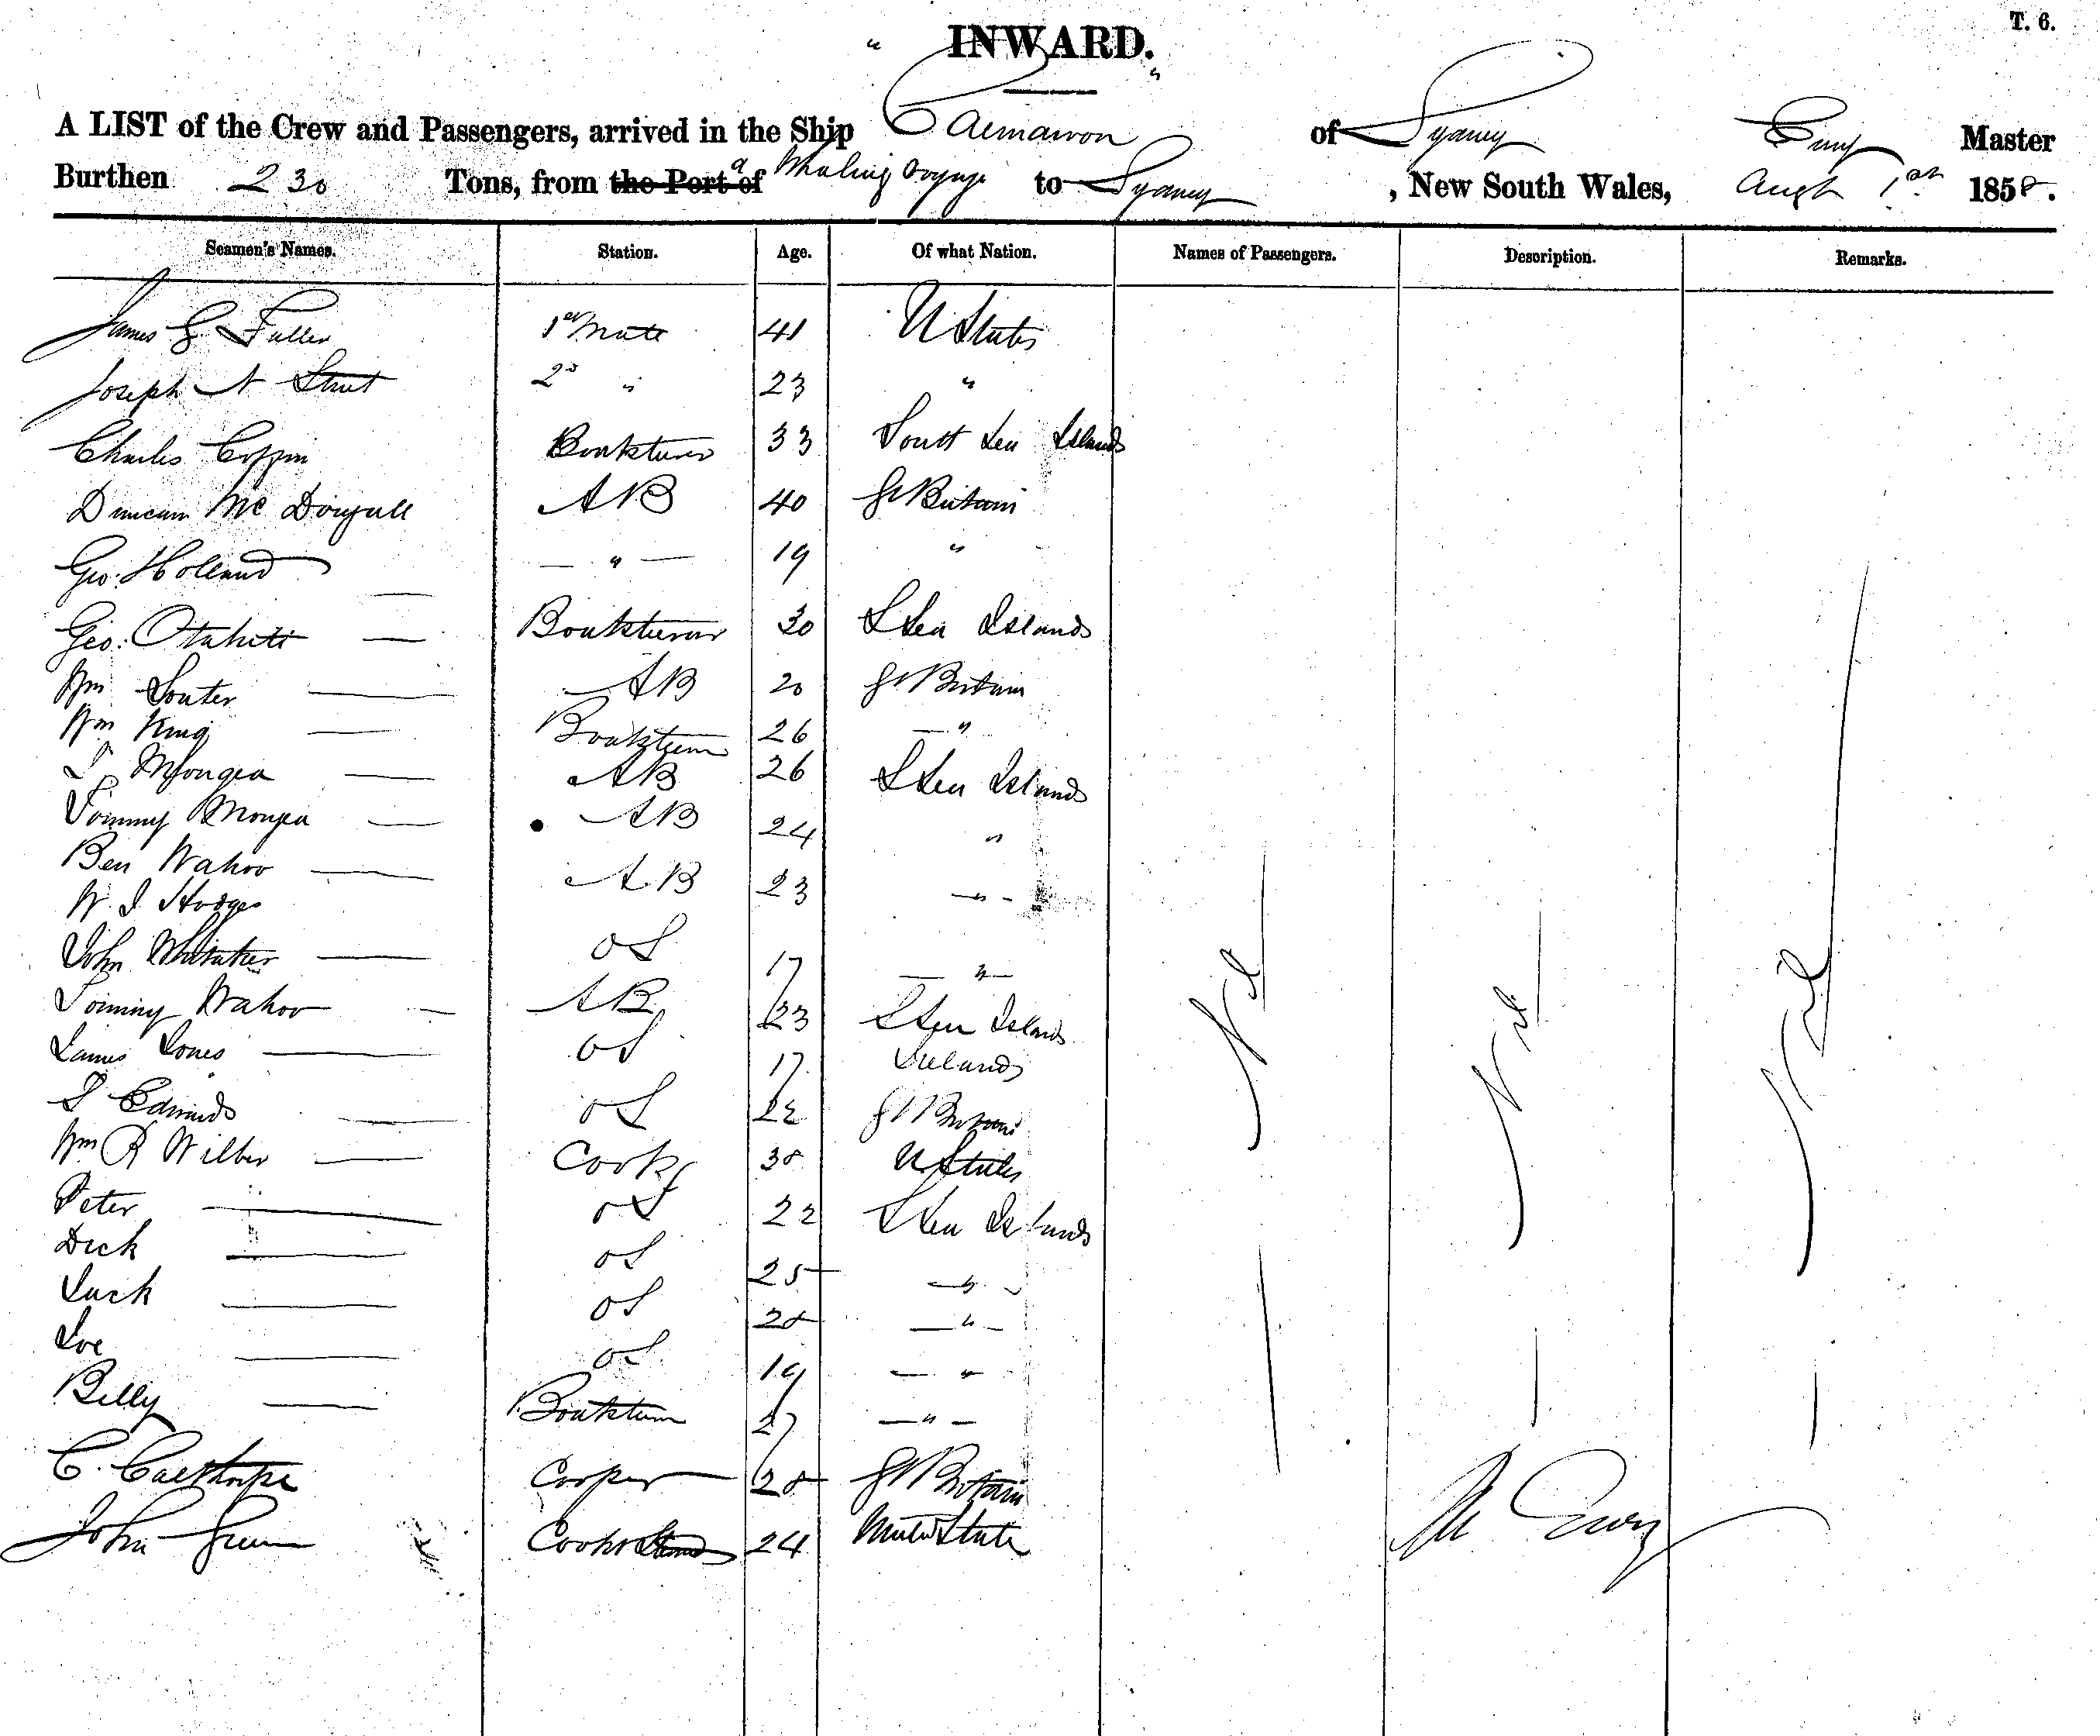 T. 6.
" INWARD. "
A LIST of the Crew and Passengers, arrived in the Ship Carnarvon of Sydney Master
Burthen 230 Tons, from the Port of a Whaling Voyage to Sydney, New South Wales, Augt 1st 1858.
Seamen's Names. Station. Age. Of what Nation. Names of Passengers. Description. Remarks.
James G Fuller 1st Mate 41 U States
Joseph N 2d " 23 "
Charles Coffin Boatsteerer 33 South Sea Islands
Duncan Mc Dougall AB 40 Gt Britain
Geo. Holland — " — 19 "
Geo. Otaheiti — Boatsteerer 30 S Sea Islands
Wm Souter — AB 20 Gt Britain
Wm King — Boatsteerer 26 — "
AB 26 S Sea Islands
Tommy — AB 24 "
Ben Wahoo — AB 23 — " -
W. J Hodges
John Whitaker — OS 17 — " —
Tommy Wahoo — AB 23 S Sea Islands
James Jones — OS 17
S Edwards — OS 22 Gt Britain
Wm R Wilber — Cook 38 U States
Peter — OS 22 S Sea Islands
Dick — OS 25 — "
Jack — OS 28 — " —
Joe — OS 19 — "
Billy — Boatsteerer 27 — " —
C. Calthorpe Cooper 28 Gt Britain
John Green Cooks 24 United State
Nil
Nil
Nil